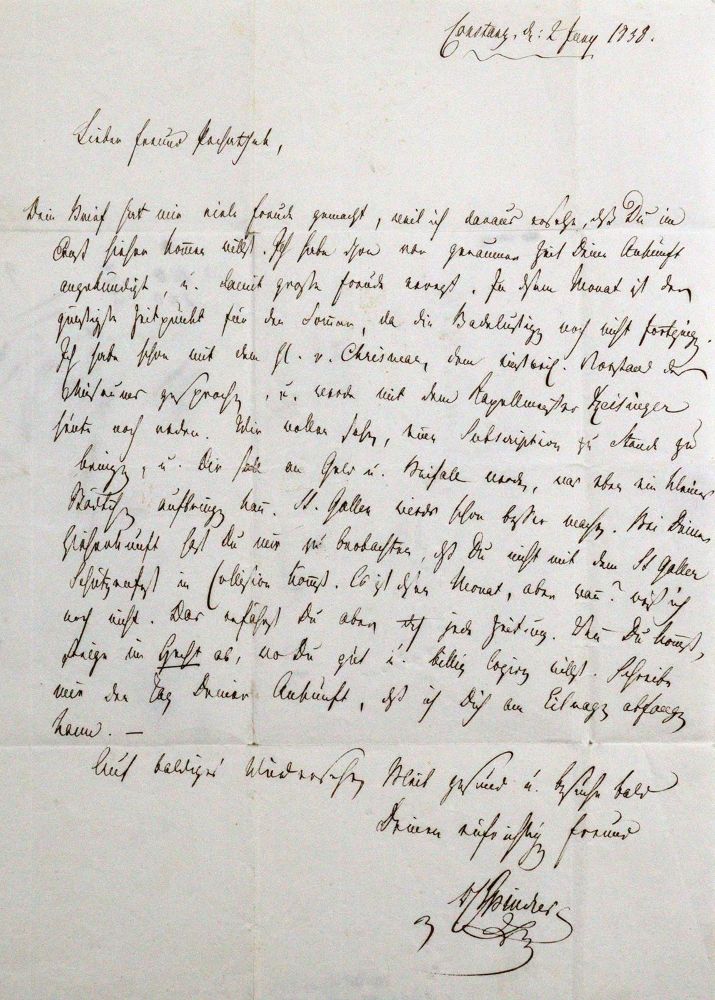 Constanz, d: 2 Juny 1838.
Lieber Freund
Dein Brief hat mir viele Freude gemacht, weil ich daraus ersehe, daß Du im
hieher kommen willst. Ich habe schon vor genaumer Zeit Deine Ankunft
angekündigt, u. damit große Freude erregt. In diesem Monat ist der
günstigste Zeitpunkt für den Sommer, da die Badelustigen noch nicht
Ich habe schon mit dem H. v. Chrismar, dem Vorstand des
Museums gesprochen, u. werde mit dem Kapellmeister
heute noch reden. Wir wollen sehen, eine Subscription zu Stande zu
bringen, u. Dir soll an Geld u. Beifall werden, was eben ein kleines
Städtchen aufbringen kann. St. Gallen wird's schon besser machen. Bei Deiner
Hieherkunft hast Du nur zu beobachten, daß Du nicht mit dem St Galler
Schützenfest in Collision kommst. Es ist diesen Monat, aber wann? weiß ich
noch nicht. Das erfährst Du aber jede Zeitung. Wenn Du kommst,
steige im Hecht ab, wo Du gut u. billig logiren willst. Schreibe
mir den Tag Deiner Ankunft, daß ich Dich am Eilwagen abfangen
kann. —
Auf baldiges Wiedersehen Bleib gesund u. besuche bald
Deinen aufrichtigen Freund
Spindler